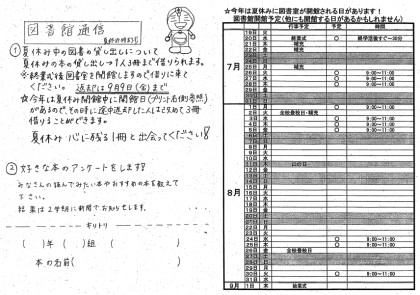 図書館通信
夏休み特別号
①夏休み中の図書の貸し出しについて
夏休みの本の貸し出し→1人3冊まで借りられます。
※終業式後図書室を開館しますので借りに来て
ください。 返却は9月9日(金)まで
☆今年は夏休み開館中に開館日(プリント右側参照)
があるので、その時に途中返却した人はさらに改めて3冊
借りることができます。
夏休み 心に残る1冊と出会ってください!
②好きな本のアンケートをします!
みなさんの読んでみたい本やおすすめの本を教えて
下さい。
結果は2学期に新聞でお知らせします。
キリトリ
( )年( )組( )
本の名前( )
☆今年は夏休みに図書室が開館される日があります!
図書館開館予定(他にも開館する日があるかもしれません)
行事予定 予定 時間
7月
19日 火
20日 水 終業式 〇 終学活後すぐ~30分
21日 木 補充
22日 金 補充
25日 月 補充
26日 火 〇 9:00~11:00
27日 水 〇 9:00~11:00
28日 木
29日 金
8月
1日 月 〇 9:00~11:00
2日 火 全校登校日・補充
3日 水
4日 木
5日 金
8日 月
9日 火
10日 水
11日 木 山の日
12日 金
15日 月
16日 火
17日 水
18日 木
19日 金
22日 月
23日 火
24日 水 〇 9:00~11:00
25日 木 〇 9:00~11:00
26日 金 全校登校日
29日 月
30日 火
31日 水
9月 1日 木 始業式